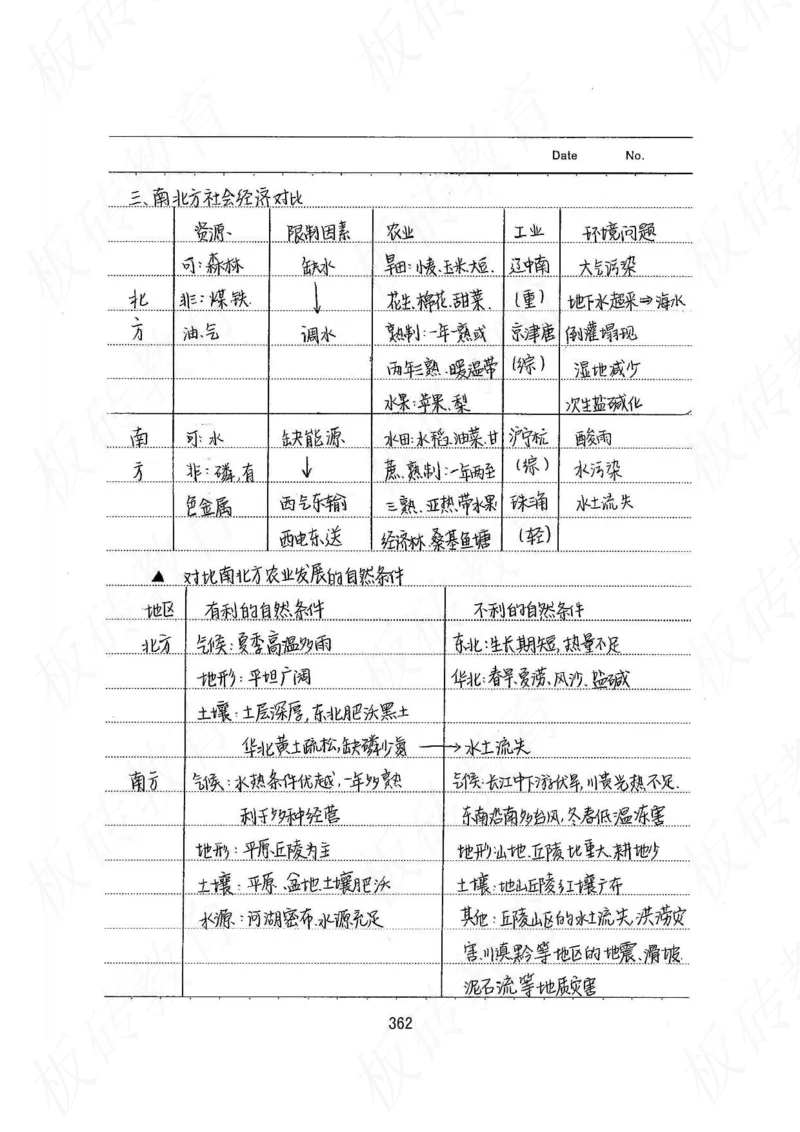 Date No.
三、南北方社会经济对比
资源、 限制因素 农业 工业 环境问题
可:森林 缺水 旱田:小麦、玉米大豆、 辽中南 大气污染
北 非:煤铁 花生、棉花、甜菜、 (重) 地下水超采⇒海水
方 油、气 调水 熟制:一年一熟或 京津唐 倒灌塌现
两年三熟、暖温带 (综) 湿地减少
水果:苹果、梨 次生盐碱化
南 可:水 缺能源 水田:水稻、油菜、甘 沪宁杭 酸雨
方 非:磷,有 蔗、熟制:一年两至 (综) 水污染
色金属 西气东输 三熟、亚热带水果 珠三角 水土流失
西电东送 经济林、桑基鱼塘 (轻)
▲ 对比南北方农业发展的自然条件
地区 有利的自然条件 不利的自然条件
北方 气候:夏季高温多雨 东北:生长期短,热量不足
地形:平坦广阔 华北:春旱、夏涝、风沙、盐碱
土壤:土层深厚,东北肥沃黑土
华北黄土疏松,缺磷少氮 → 水土流失
南方 气候:水热条件优越,一年多熟 气候:长江中下游伏旱,川黄光热不足.
利于多种经营 东南沿南多台风,冬春低温冻害
地形:平原、丘陵为主 地形:山地、丘陵比重大、耕地少
土壤:平原、盆地土壤肥沃 土壤:地山丘陵红壤广布
水源:河湖密布、水源充足 其他:丘陵山区的水土流失,洪涝灾
害、川滇黔等地区的地震、滑坡
泥石流等地质灾害
362
板砖教育